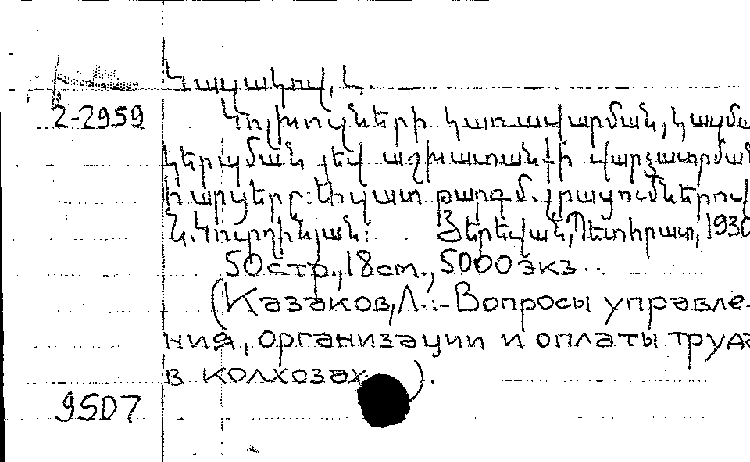 Կազակով, Լ.
2-2959 Կոլխոզների կառավարման, կազմա
կերպման յեվ աշխատանքի վարձատրման
հարցերը: թարգմ. լրացումներով
Ն. Կուրղինյան: Յերեվան, Պետհրատ, 1930
50 стр., 18 cm., 5000 экз.
(Казаков, Л. - Вопросы управле-
ния, организации и оплаты труда
в колхозах).
9507